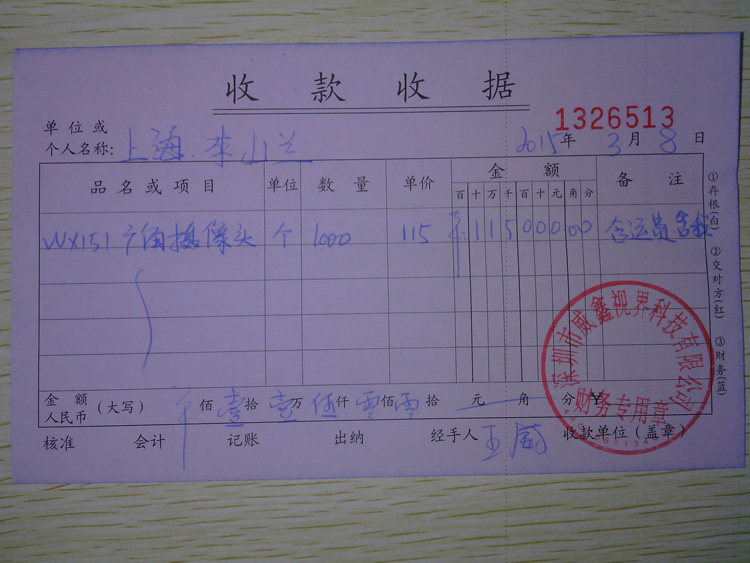 收款收据
1326513
单位或
个人名称: 上海 李小兰 2015年3月8日
品名或项目 单位 数量 单价 金额 备注
百十万千百十元角分
WX151广角摄像头 个 1000 115 11500000 含运费含税
金额
人民币 (大写) 佰壹拾壹万伍仟零佰零拾 元 角 分 ¥
核准 会计 记账 出纳 经手人 王威 收款单位(盖章)
①存根(白) ②交对方(红) ③财务(蓝)
深圳市威鑫视界科技有限公司
财务专用章